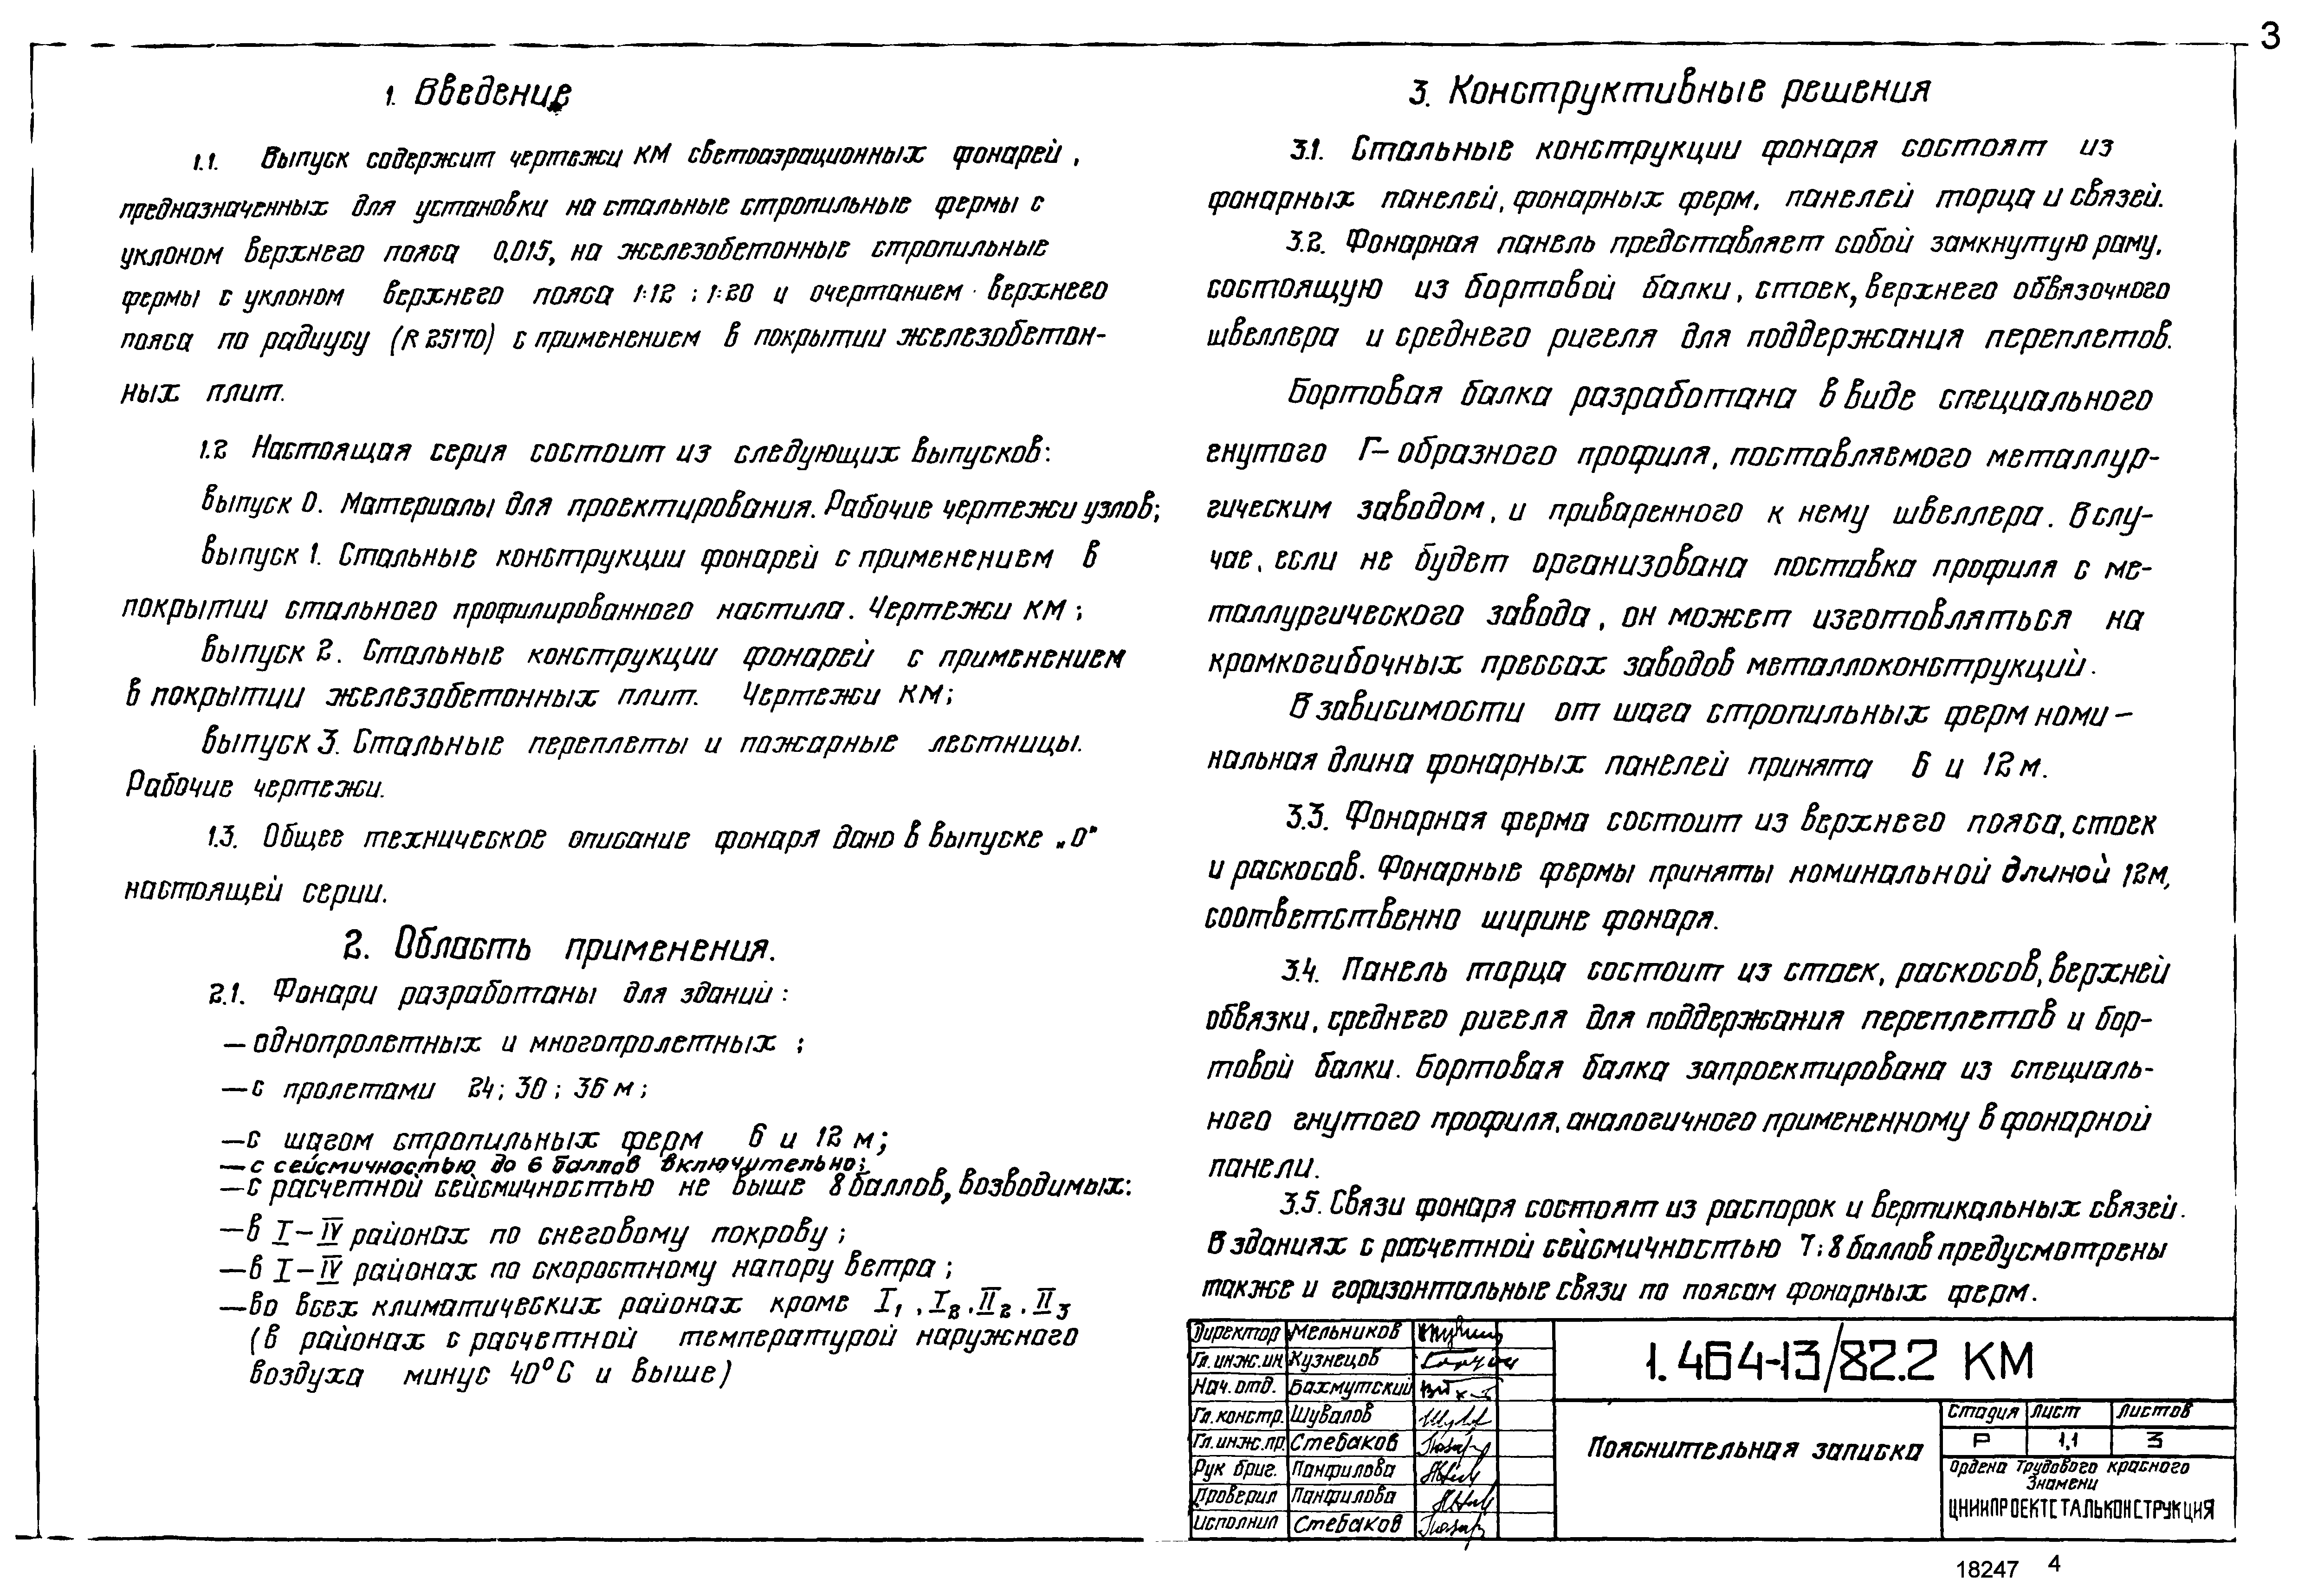 3
1. Введение
1.1. Выпуск содержит чертежи КМ светоаэрационных фонарей,
предназначенных для установки на стальные стропильные фермы с
уклоном верхнего пояса 0.015, на железобетонные стропильные
фермы с уклоном верхнего пояса 1:12 ; 1:20 и очертанием верхнего
пояса по радиусу (R 25170) с применением в покрытии железобетон-
ных плит.
1.2 Настоящая серия состоит из следующих выпусков:
выпуск 0. Материалы для проектирования. Рабочие чертежи узлов;
выпуск 1. Стальные конструкции фонарей с применением в
покрытии стального профилированного настила. Чертежи КМ;
выпуск 2. Стальные конструкции фонарей с применением
в покрытии железобетонных плит. Чертежи КМ;
выпуск 3. Стальные переплеты и пожарные лестницы.
Рабочие чертежи.
1.3. Общее техническое описание фонаря дано в выпуске „0"
настоящей серии.
2. Область применения.
2.1. Фонари разработаны для зданий:
— однопролетных и многопролетных ;
— с пролетами 24; 30; 36 м;
— с шагом стропильных ферм 6 и 12 м;
— с сейсмичностью до 6 баллов включительно;
— с расчетной сейсмичностью не выше 8 баллов, возводимых:
— в I–IV районах по снеговому покрову;
— в I–IV районах по скоростному напору ветра;
— во всех климатических районах кроме I1, I2, II2, II3
(в районах с расчетной температурой наружного
воздуха минус 40°С и выше)
3. Конструктивные решения
3.1. Стальные конструкции фонаря состоят из
фонарных панелей, фонарных ферм, панелей торца и связей.
3.2. Фонарная панель представляет собой замкнутую раму,
состоящую из бортовой балки, стоек, верхнего обвязочного
швеллера и среднего ригеля для поддержания переплетов.
Бортовая балка разработана в виде специального
гнутого Г-образного профиля, поставляемого металлур-
гическим заводом, и приваренного к нему швеллера. В слу-
чае, если не будет организована поставка профиля с ме-
таллургического завода, он может изготовляться на
кромкогибочных прессах заводов металлоконструкций.
В зависимости от шага стропильных ферм номи-
нальная длина фонарных панелей принята 6 и 12 м.
3.3. Фонарная ферма состоит из верхнего пояса, стоек
и раскосов. Фонарные фермы приняты номинальной длиной 12м,
соответственно ширине фонаря.
3.4. Панель торца состоит из стоек, раскосов, верхней
обвязки, среднего ригеля для поддержания переплетов и бор-
товой балки. Бортовая балка запроектирована из специаль-
ного гнутого профиля, аналогичного примененному в фонарной
панели.
3.5. Связи фонаря состоят из распорок и вертикальных связей.
В зданиях с расчетной сейсмичностью 7; 8 баллов предусмотрены
также и горизонтальные связи по поясам фонарных ферм.
Директор Мельников
Гл. инж. ин. Кузнецов
Нач. отд. Бахмутский
Гл. констр. Шувалов
Гл. инж. пр. Стебаков
Рук бриг. Панфилова
Проверил Панфилова
Исполнил Стебаков
1.464-13/82.2 КМ
Пояснительная записка
Стадия Лист Листов
Р 1.1 3
Ордена Трудового Красного
Знамени
ЦНИИПРОЕКТСТАЛЬКОНСТРУКЦИЯ
18247 4